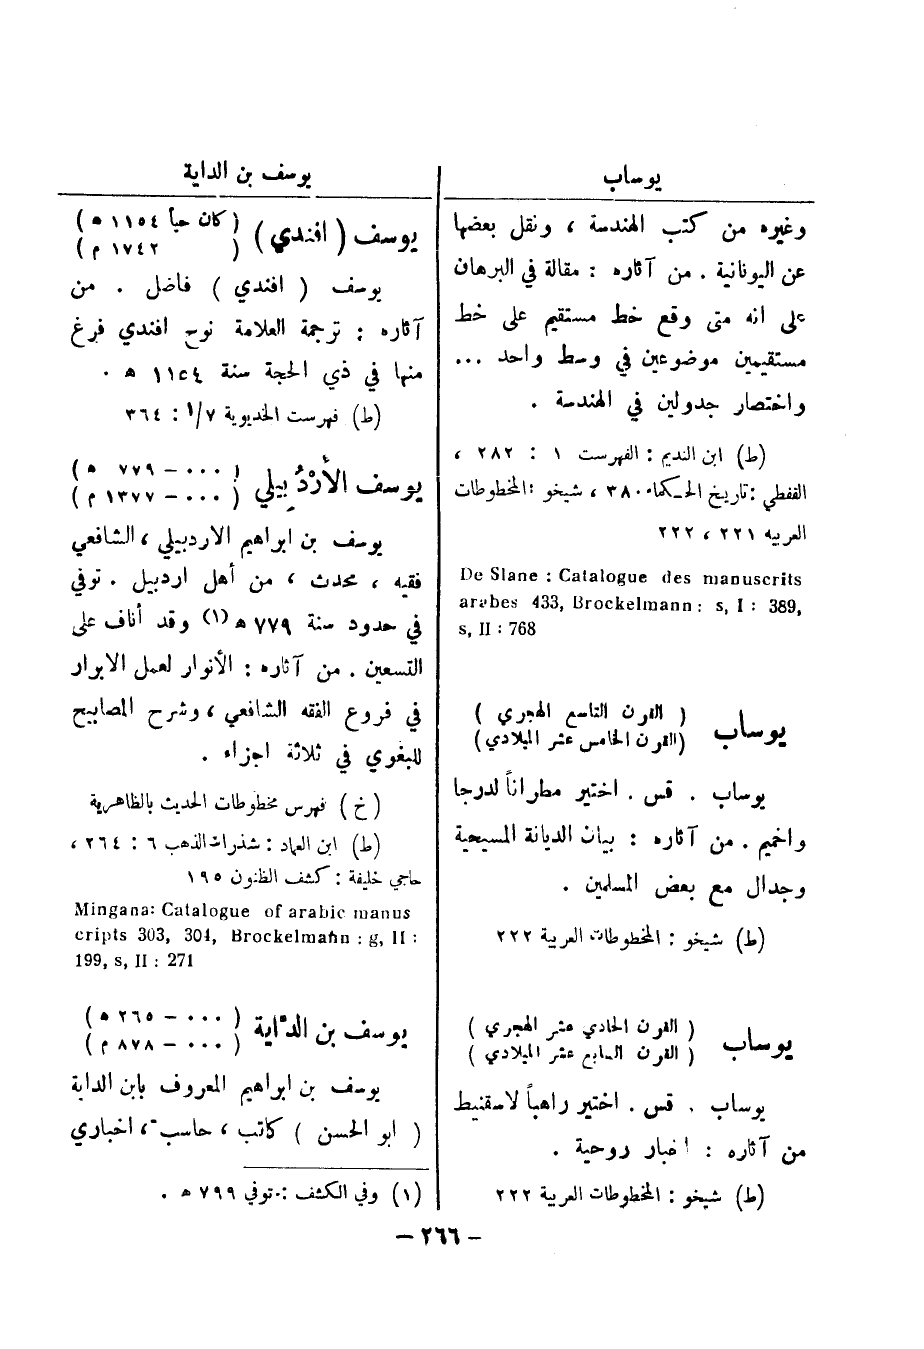 يوساب
وغيره من كتب الهندسة ، ونقل بعضها
عن اليونانية . من آثاره : مقالة في البرهان
على انه متى وقع خط مستقيم على خط
مستقيمين موضوعين في وسط واحد ...
واختصار جدولين في الهندسة .
(ط) ابن النديم : الفهرست ١ : ٢٨٢ ،
القفطي : تاريخ الحكماء ٣٨٠ ، شيخو : المخطوطات
العربيه ٢٢١ ، ٢٢٢
De Slane : Catalogue des manuscrits
arabes 433, Brockelmann : s, I : 389,
s, II : 768
يوساب ( القرن التاسع الهجري )
(القرن الخامس عشر الميلادي)
يوساب . قس . اختير مطراناً لدرجا
واخميم . من آثاره : بيان الديانة المسيحية
وجدال مع بعض المسلمين .
(ط) شيخو : المخطوطات العربية ٢٢٢
يوساب ( القرن الحادي عشر الهجري )
( القرن السابع عشر الميلادي )
يوساب . قس . اختير راهباً لاسقنيط
من آثاره : اخبار روحية .
(ط) شيخو : المخطوطات العربية ٢٢٢
يوسف بن الداية
يوسف ( افندي ) ( كان حياً ١١٥٤ ه )
( ١٧٤٢ م )
يوسف ( افندي ) فاضل . من
آثاره : ترجمة العلامة نوح افندي فرغ
منها في ذي الحجة سنة ١١٥٤ ه .
(ط) فهرست الخديوية ١/٧ : ٣٦٤
يوسف الأرْدُبيلي ( ٠٠٠ – ٧٧٩ ه )
( ٠٠٠ – ١٣٧٧ م )
يوسف بن ابراهيم الاردبيلي ، الشافعي
فقيه ، محدث ، من أهل اردبيل . توفي
في حدود سنة ٧٧٩ ه (١) وقد أناف على
التسعين . من آثاره : الأنوار لعمل الابرار
في فروع الفقه الشافعي ، وشرح المصابيح
للبغوي في ثلاثة اجزاء .
(خ) فهرس مخطوطات الحديث بالظاهرية
(ط) ابن العماد : شذرات الذهب ٦ : ٢٦٤ ،
حاجي خليفة : كشف الظنون ١٩٥
Mingana: Catalogue of arabic manus
cripts 303, 304, Brockelmann : g, II :
199, s, II : 271
يوسف بن الدّاية ( ٠٠٠ – ٢٦٥ ه )
( ٠٠٠ – ٨٧٨ م )
يوسف بن ابراهيم المعروف بابن الداية
( ابو الحسن ) كاتب ، حاسب ، اخباري
(١) وفي الكشف : توفي ٧٩٩ ه .
– ٢٦٦ –